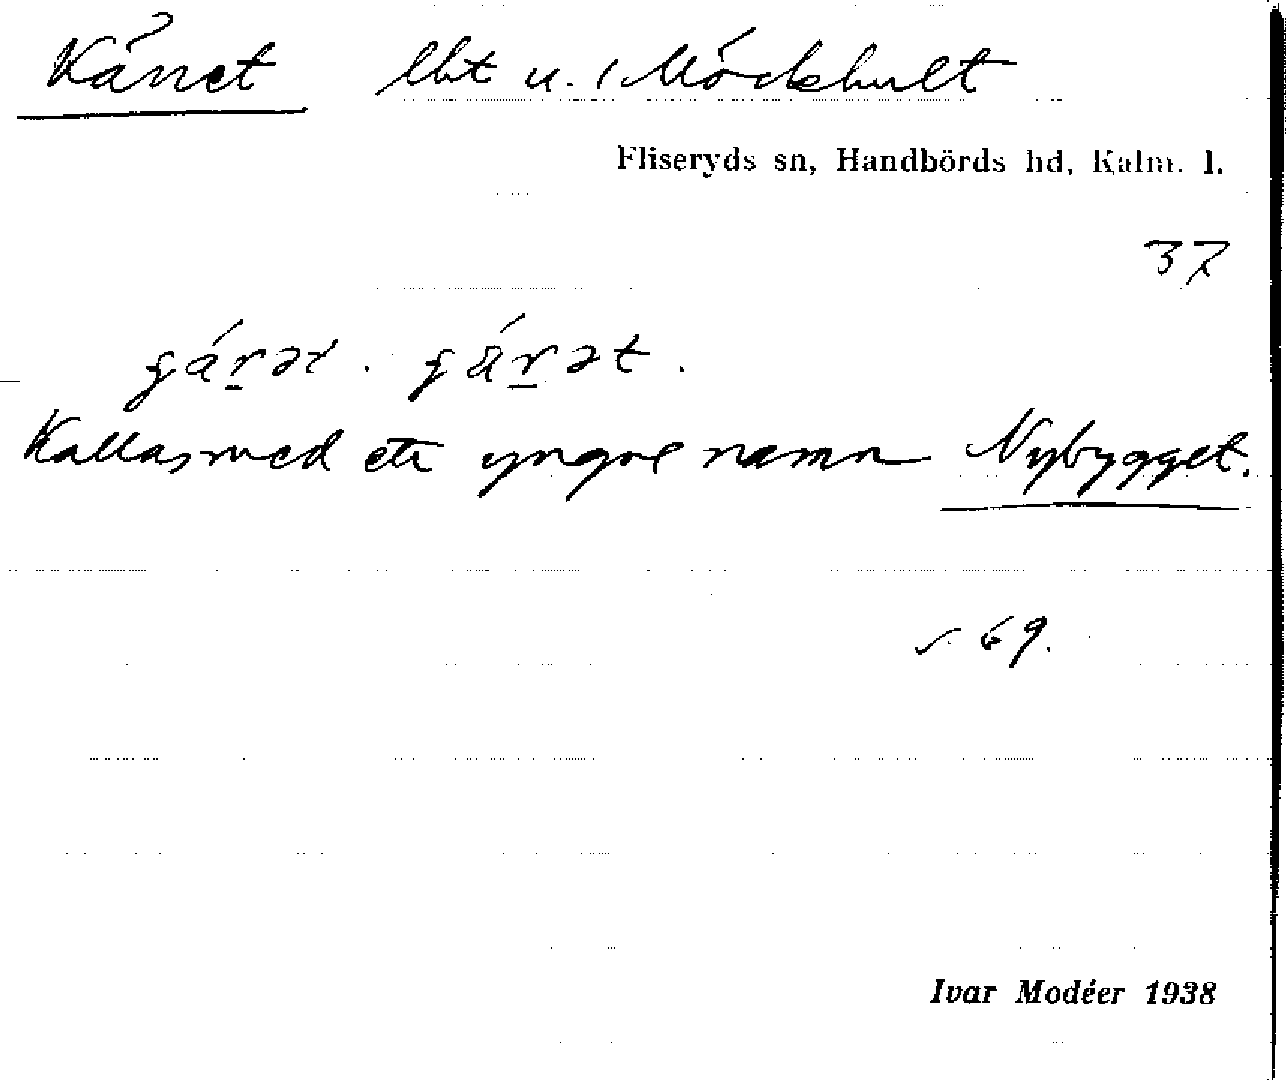 Kånet lht u. 1 Möckhult
Fliseryds sn, Handbörds hd, Kalm. l.
37
Kallas med ett yngre namn Nybygget.
s. 69.
Ivar Modéer 1938